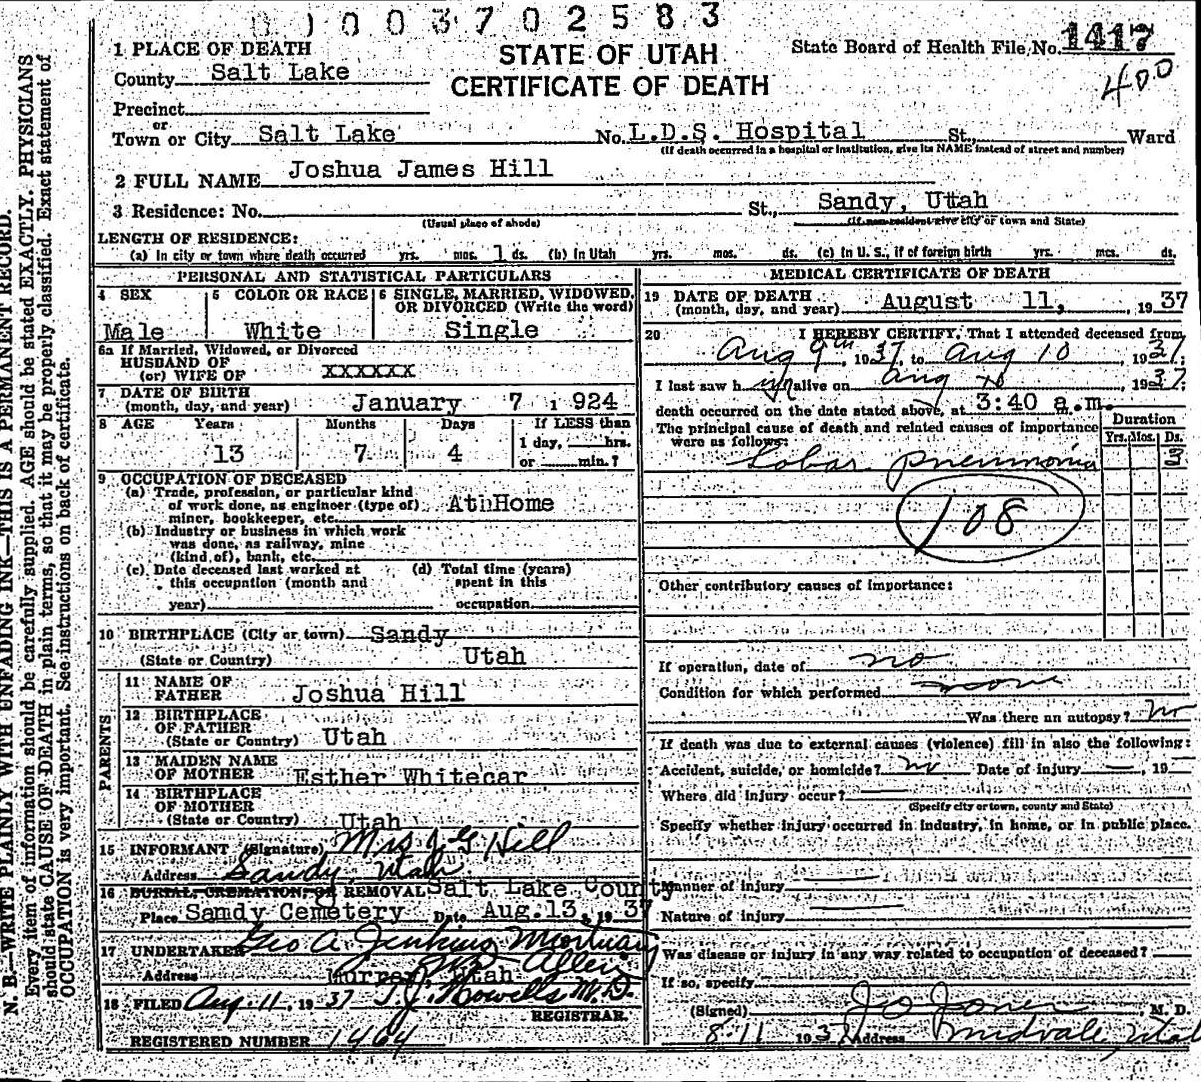 0 1 0 0 3 7 0 2 5 8 3
STATE OF UTAH
CERTIFICATE OF DEATH
State Board of Health File No. 1417
400
1 PLACE OF DEATH
County Salt Lake
Precinct
or
Town or City Salt Lake No. L.D.S. Hospital St., Ward
(If death occurred in a hospital or institution, give its NAME instead of street and number)
2 FULL NAME Joshua James Hill
3 Residence: No. St., Sandy, Utah
(Usual place of abode) (If non-resident give city or town and State)
LENGTH OF RESIDENCE:
(a) In city or town where death occurred yrs. mos. 1 ds. (b) In Utah yrs. mos. ds. (c) In U. S., if of foreign birth yrs. mcs. ds.
PERSONAL AND STATISTICAL PARTICULARS
4 SEX 5 COLOR OR RACE 6 SINGLE, MARRIED, WIDOWED, OR DIVORCED (Write the word)
Male White Single
6a If Married, Widowed, or Divorced
HUSBAND OF
(or) WIFE OF XXXXXX
7 DATE OF BIRTH
(month, day, and year) January 7 1 924
8 AGE Years Months Days If LESS than
13 7 4 1 day, hrs.
or min.?
9 OCCUPATION OF DECEASED
(a) Trade, profession, or particular kind
of work done, as engineer (type of) At Home
miner, bookkeeper, etc.
(b) Industry or business in which work
was done, as railway, mine
(kind of), bank, etc.
(c) Date deceased last worked at (d) Total time (years)
this occupation (month and spent in this
year) occupation
10 BIRTHPLACE (City or town) Sandy
(State or Country) Utah
PARENTS
11 NAME OF
FATHER Joshua Hill
12 BIRTHPLACE
OF FATHER
(State or Country) Utah
13 MAIDEN NAME
OF MOTHER Esther Whitecar
14 BIRTHPLACE
OF MOTHER
(State or Country) Utah
15 INFORMANT (Signature) Mrs J G Hill
Address Sandy Utah
16 BURIAL, CREMATION, OR REMOVAL Salt Lake County
Place Sandy Cemetery Date Aug. 13, 19 37
17 UNDERTAKER Geo A Jenkins Mortuary
Address Murray, Utah
18 FILED Aug. 11, 19 37 T. J. Howells M.D.
REGISTRAR.
REGISTERED NUMBER 1464
MEDICAL CERTIFICATE OF DEATH
19 DATE OF DEATH
(month, day, and year) August 11, 19 37
20 I HEREBY CERTIFY, That I attended deceased from
Aug 9th, 19 37, to Aug 10 19 37;
I last saw h im alive on Aug 10 19 37;
death occurred on the date stated above, at 3:40 a.m.
The principal cause of death and related causes of importance
were as follows:
Duration
Yrs. Mos. Ds.
Lobar pneumonia
108
Other contributory causes of importance:
If operation, date of no
Condition for which performed none
Was there an autopsy? no
If death was due to external causes (violence) fill in also the following:
Accident, suicide, or homicide? no Date of injury — , 19
Where did injury occur?
(Specify city or town, county and State)
Specify whether injury occurred in industry, in home, or in public place.
Manner of injury
Nature of injury
Was disease or injury in any way related to occupation of deceased?
If so, specify
(Signed) J O Jones, M. D.
8-11 19 37 Address Midvale, Utah
N. B.—WRITE PLAINLY WITH UNFADING INK—THIS IS A PERMANENT RECORD.
Every item of information should be carefully supplied. AGE should be stated EXACTLY. PHYSICIANS
should state CAUSE OF DEATH in plain terms, so that it may be properly classified. Exact statement of
OCCUPATION is very important. See instructions on back of certificate.